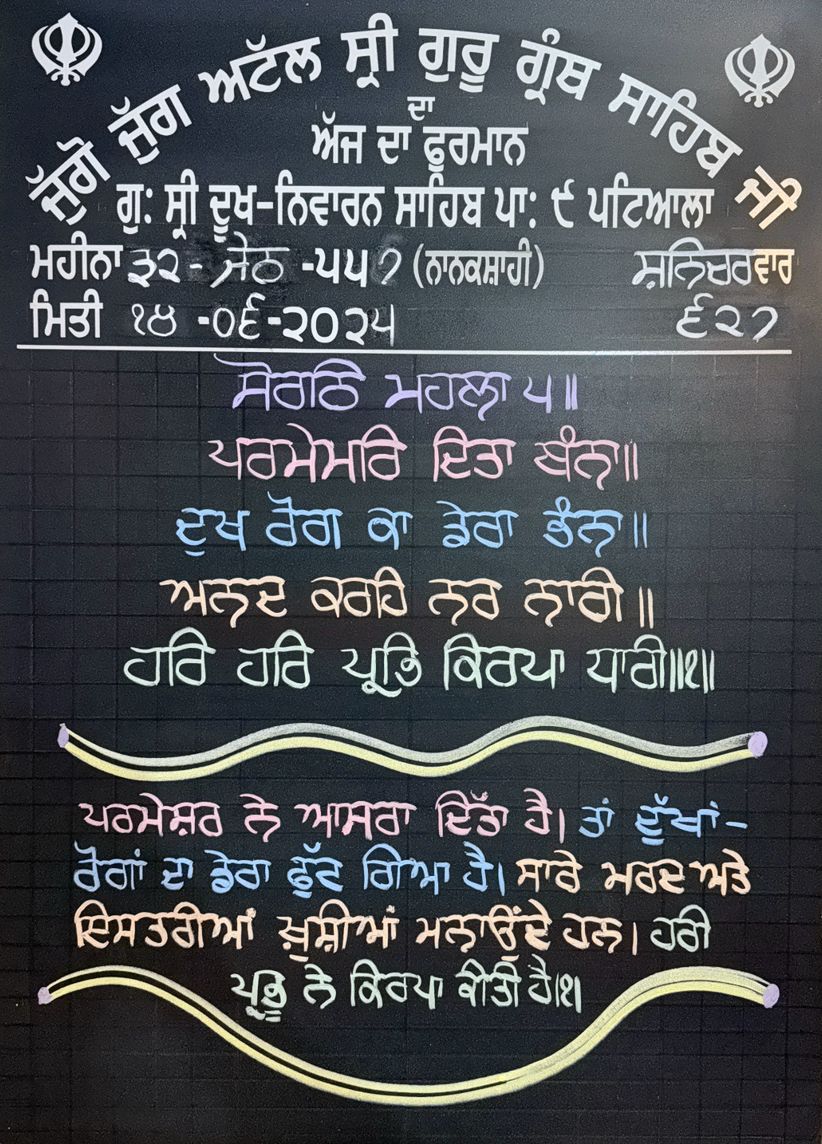 ਜੁੱਗੋ ਜੁੱਗ ਅਟੱਲ ਸ੍ਰੀ ਗੁਰੂ ਗ੍ਰੰਥ ਸਾਹਿਬ ਜੀ
ਦਾ
ਅੱਜ ਦਾ ਫੂਰਮਾਨ
ਗੁ: ਸ੍ਰੀ ਦੂਖ-ਨਿਵਾਰਨ ਸਾਹਿਬ ਪਾ: ੯ ਪਟਿਆਲਾ
ਮਹੀਨਾ ੩੨ - ਜੇਠ -੫੫੭ (ਨਾਨਕਸ਼ਾਹੀ) ਸ਼ਨਿਚਰਵਾਰ
ਮਿਤੀ ੧੪ -੦੬-੨੦੨੫ ੬੨੭
ਸੋਰਠਿ ਮਹਲਾ ੫॥
ਪਰਮੇਸਰਿ ਦਿਤਾ ਬੰਨਾ॥
ਦੁਖ ਰੋਗ ਕਾ ਡੇਰਾ ਭੰਨਾ॥
ਅਨਦ ਕਰਹਿ ਨਰ ਨਾਰੀ॥
ਹਰਿ ਹਰਿ ਪ੍ਰਭਿ ਕਿਰਪਾ ਧਾਰੀ॥੧॥
ਪਰਮੇਸ਼ਰ ਨੇ ਆਸਰਾ ਦਿੱਤਾ ਹੈ। ਤਾਂ ਦੁੱਖਾਂ-
ਰੋਗਾਂ ਦਾ ਡੇਰਾ ਫੁੱਟ ਗਿਆ ਹੈ। ਸਾਰੇ ਮਰਦ ਅਤੇ
ਇਸਤਰੀਆਂ ਖ਼ੁਸ਼ੀਆਂ ਮਨਾਉਂਦੇ ਹਨ। ਹਰੀ
ਪ੍ਰਭੂ ਨੇ ਕਿਰਪਾ ਕੀਤੀ ਹੈ।੧।